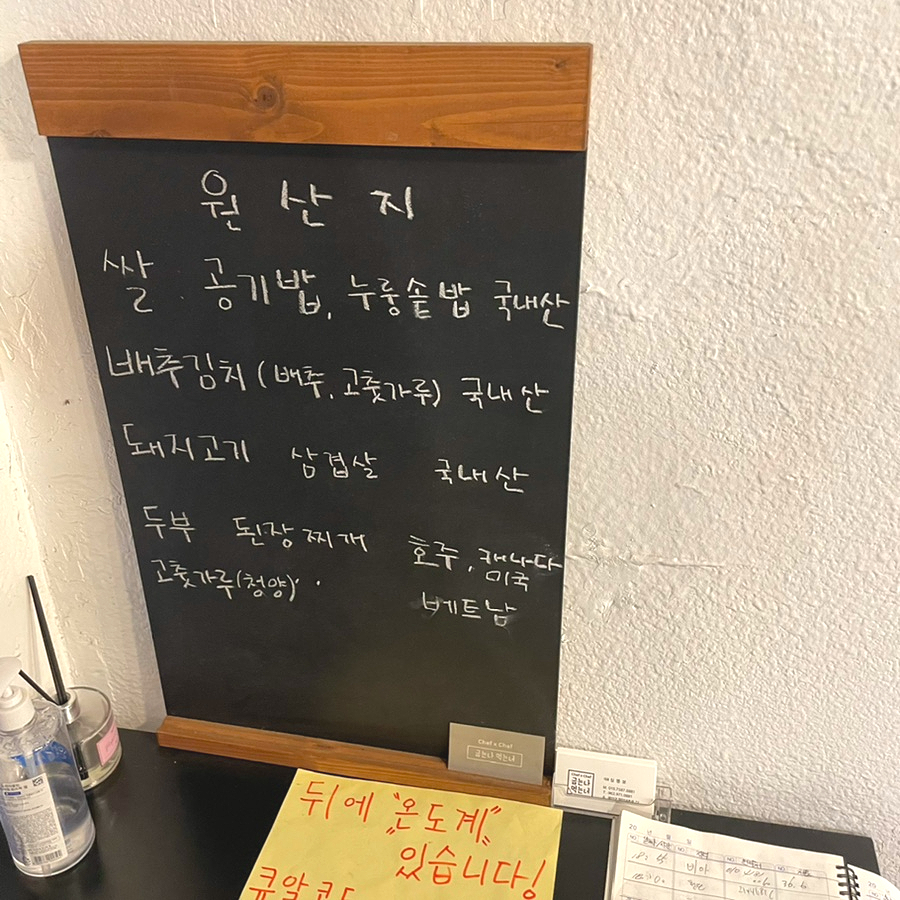 원산지
쌀 공기밥, 누룽솥밥 국내산
배추김치 (배추, 고춧가루) 국내산
돼지고기 삼겹살 국내산
두부 된장찌개 호주, 캐나다
미국
고춧가루(청양) 베트남
Chef x Chef
굽는나 먹는너
굽는나
먹는너
뒤에 "온도계"
있습니다!
큐알코드
비아